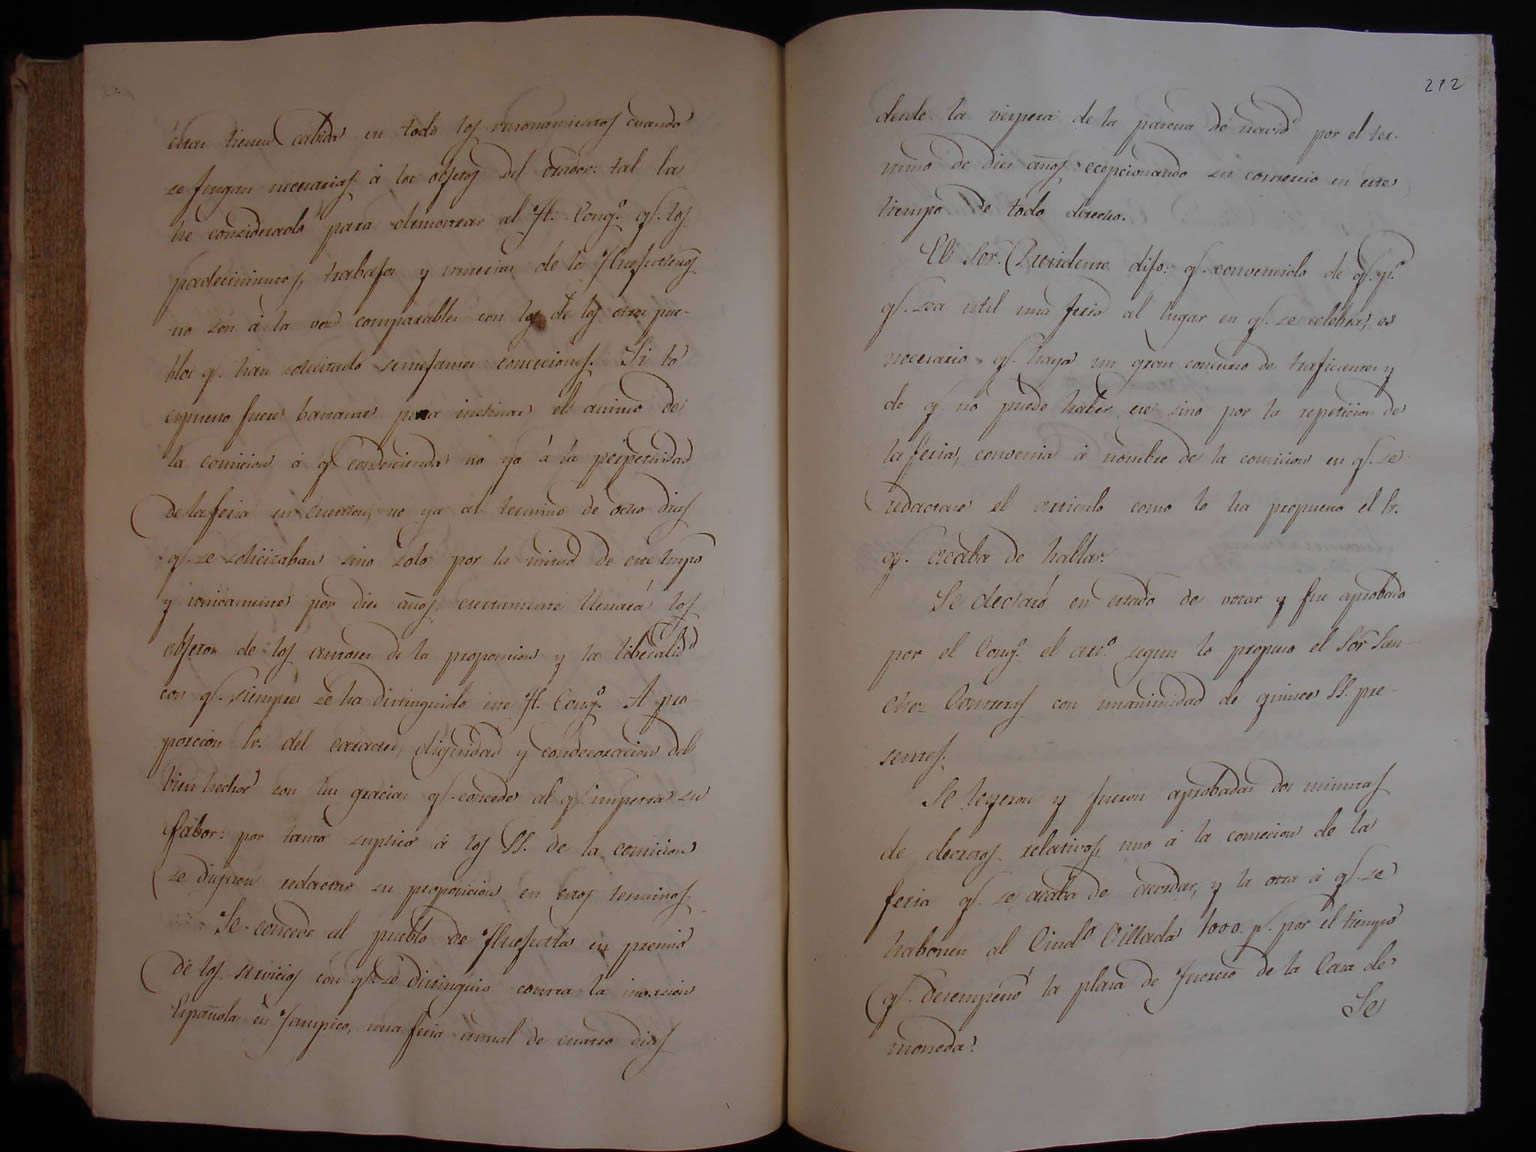 estas tienen cabida en todo los razonamientos cuando
se juzgan necesarias á los objetos del orador: tal la
he considerado para demostrar al H. Cong.º q. los
padecimientos, trabajos y miserias de lo Huejutlenos
no son á la vez comparables con los de los otros pue-
blos q. han solicitado semejantes concesiones. Si lo
expuesto fuere bastante para inclinar el animo de
la comision á q condecienda no ya á la perpetuidad
de la feria en cuestion, no ya al termino de ocho dias
q. se solicitaban sino solo por la mitad de este tmpo
y unicamente por dies años, ciertamente llenará los
objetos de los autores de la proposicion y la liberalid.d
con q. siempre se ha distinguido este H. Cong.º A pro
porcion Sr. del caracter, dignidad y condecoracion del
bien hechor son las gracias q. concede al q. impetra su
fabor: por tanto suplico á los SS. de la comision
se dignen redactar su proposicion en estos terminos.
Se concede al pueblo de Huejutla en premio
de los servicios con q. se distinguio contra la invasion
Española en Tampico, una feria annual de cuatro dias
212
desde la vispera de la pascua de navid.d por el ter-
mino de dies años ecepcionando su comercio en este
tiempo de todo derecho.
El Sor. Presidente dijo: q. convencido de q. p.ª
q. sea util una feria al lugar en q. se celebra, es
necesario q. haya un gran concurso de traficantes y
de q no puede haber ese sino por la repeticion de
la feria, convenia á nombre de la comision en q. se
redactase el articulo como lo ha propuesto el Sr.
q. acaba de hablar.
Se declaró en estado de votar y fue aprobado
por el Cong.º el art.º segun lo propuso el Sor San
chez Contreras con unanimidad de quince SS. pre-
sentes.
Se leyeron y fueron aprobadas dos minutas
de decretos relativos, uno á la concecion de la
feria q. se acaba de acordar, y la otra á q. se
habonen al Ciud.º Villada 1000. p.s por el tiempo
q. desempeñó la plaza de Tesorero de la Casa de
moneda.
Se